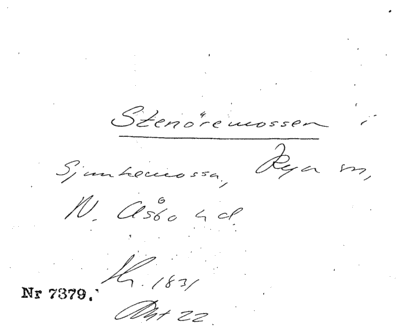 Stenöremossen i
Sjunkemossa, Rya sn,
N. Åsbo hd.
Nr 7379.
1831
22